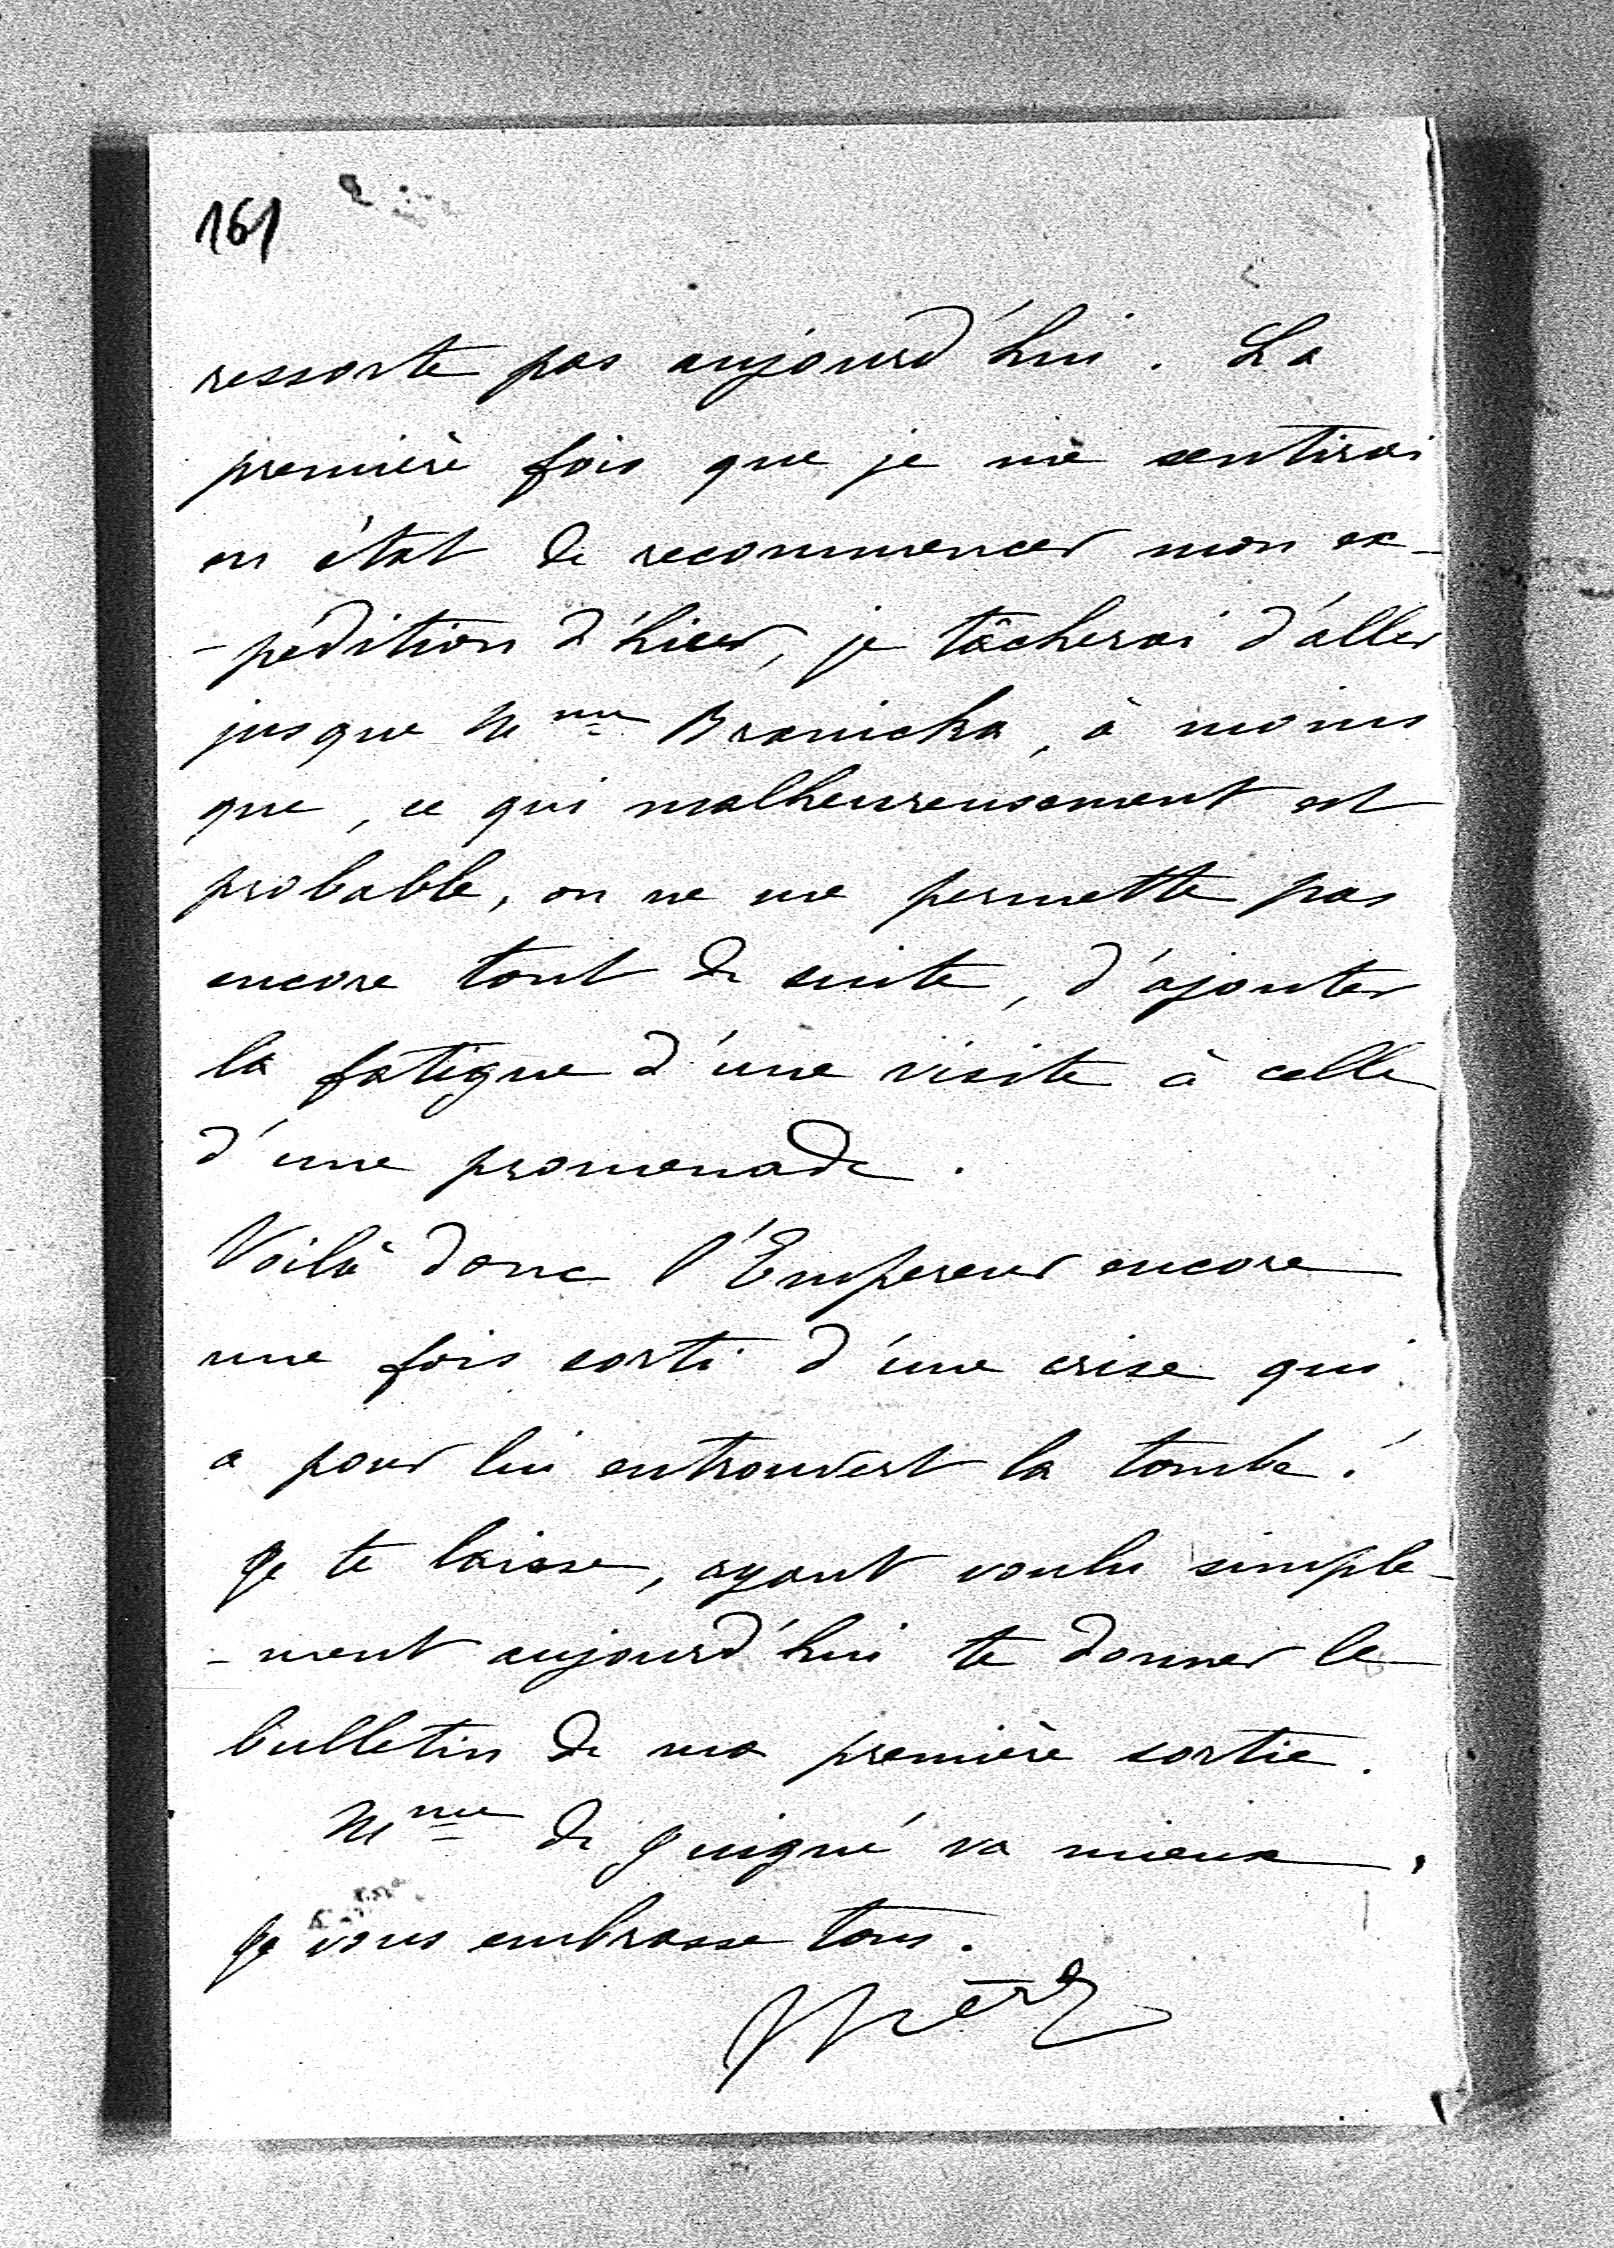 161
ressorte pas aujourd'hui. La
première fois que je me sentirai
en état de recommencer mon ex-
-pédition d'hier, je tâcherai d'aller
jusque Mme Branicka, à moins
que, ce qui malheureusement est
probable, on ne me permette pas
encore tout de suite, d'ajouter
la fatigue d'une visite à celle
d'une promenade.
Voilà donc l'Empereur encore
une fois sorti d'une crise qui
a pour lui entrouvert la tombe!
Je te laisse, ayant voulu simple-
-ment aujourd'hui te donner le
bulletin de ma première sortie.
Mme de Guigné va mieux.
Je vous embrasse tous.